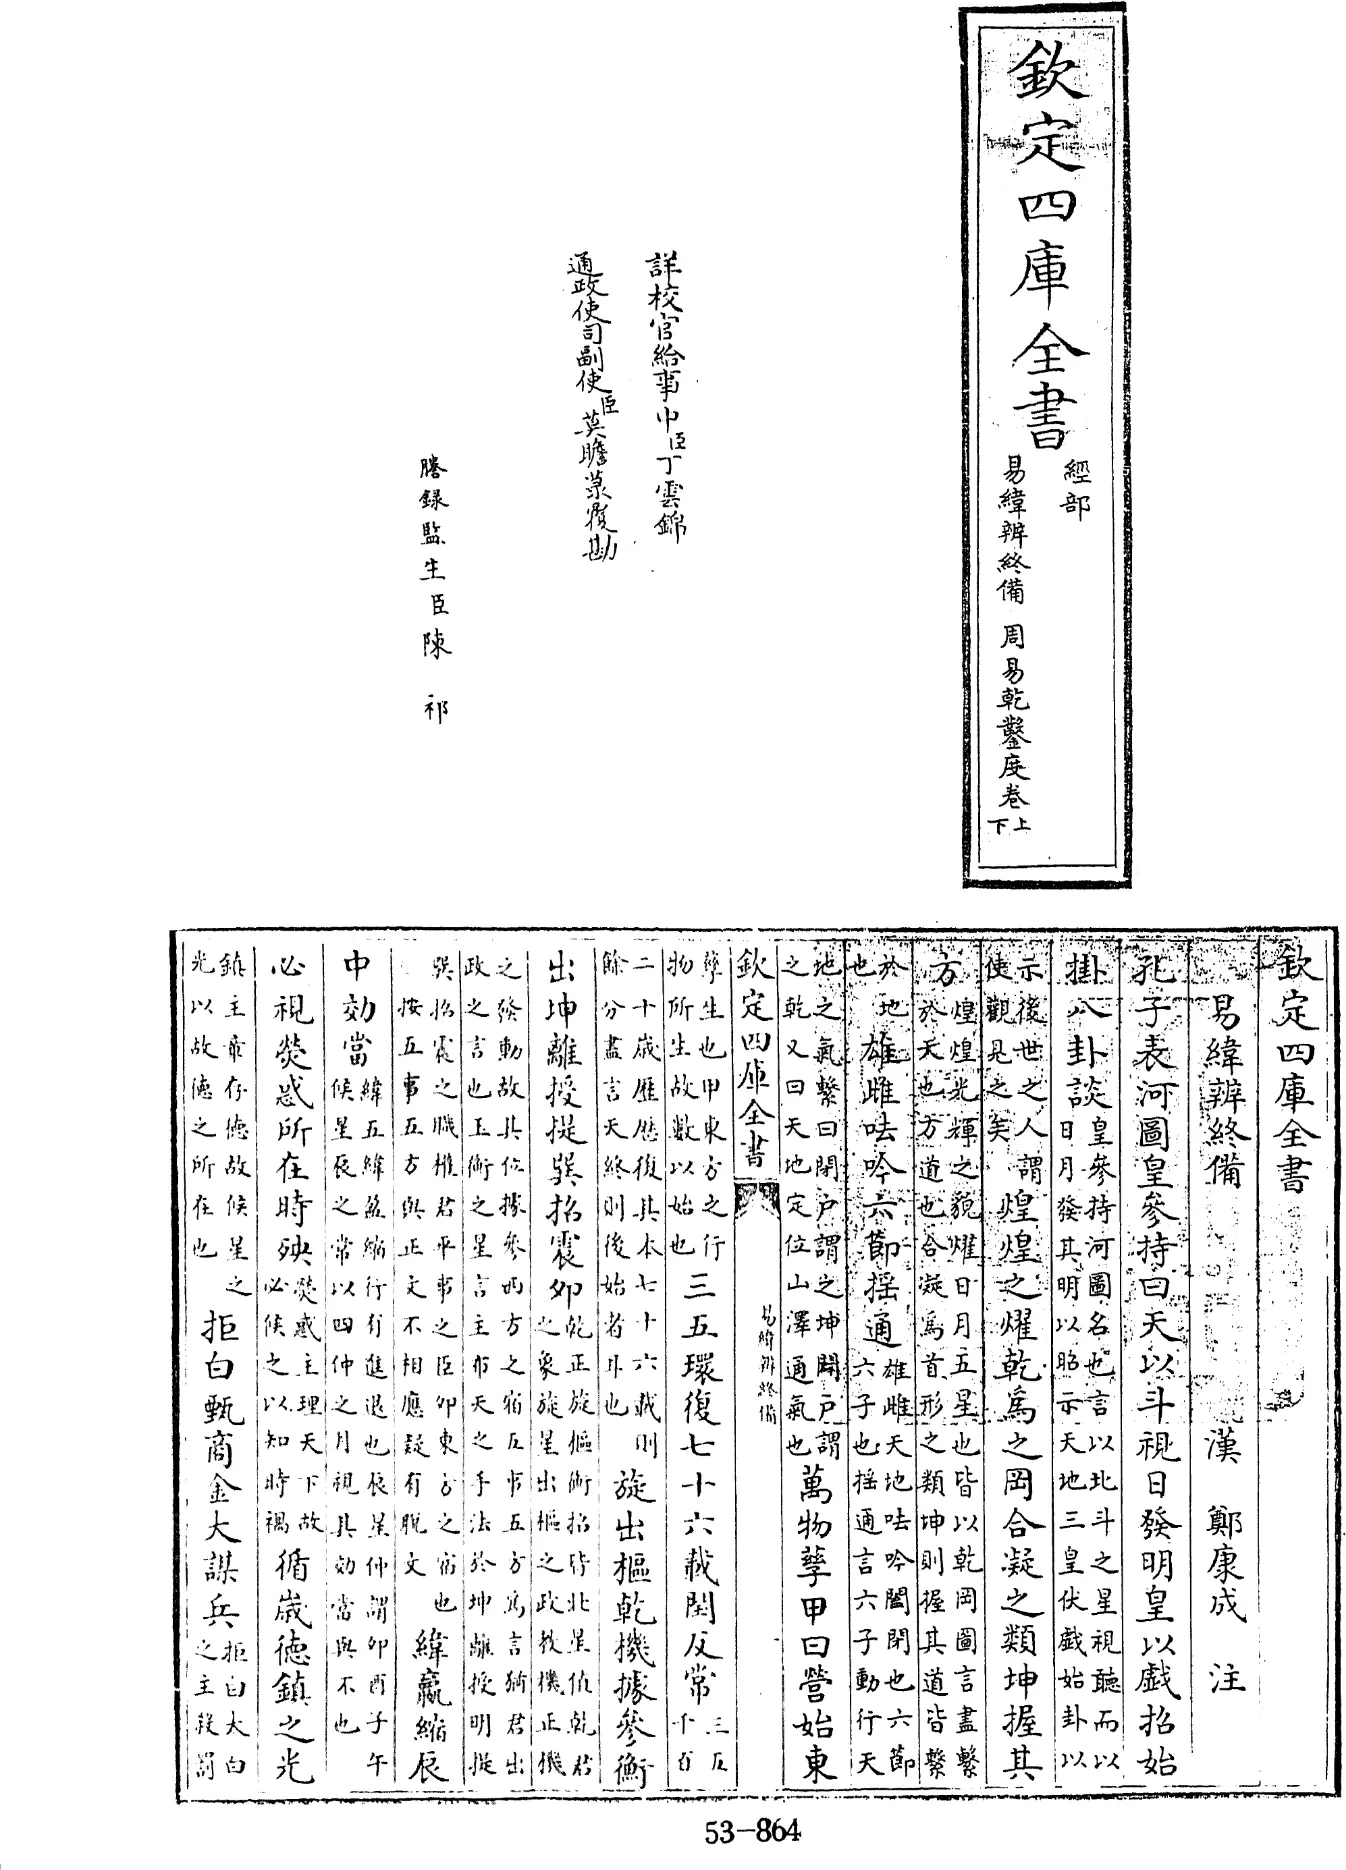 欽定四庫全書
經部
易緯辨終備 周易乾鑿度卷上下
詳校官給事中臣丁雲錦
通政使司副使臣莫瞻菉覆勘
謄録監生臣陳祁
欽定四庫全書
易緯辨終備 漢 鄭康成 注
孔子表河圖皇參持曰天以斗視日發明皇以戲招始
掛八卦談皇參持河圖名也言以北斗之星視聽而以日月發其明以昭示天地三皇伏戲始卦以
示後世之人謂使觀見之矣煌煌之耀乾為之岡合凝之類坤握其
方煌煌光輝之貌耀日月五星也皆以乾岡圖言盡繫於天也方道也合凝為首形之類坤則握其道皆繫
於地也雄雌呿吟六節揺通雄雌天地呿吟闔閉也六節六子也揺通言六子動行天
地之氣繫曰閉户謂之坤闢户謂之乾又曰天地定位山澤通氣也萬物孽甲曰營始東
欽定四庫全書
易緯辨終備
孽生也甲東方之行物所生故數以始也三五環復七十六載閏反常三五千百
二十歲歴歴復其本七十六載則餘分盡言天終則後始者斗也旋出樞乾機據參衡
出坤離授提巽招震卯乾正旋樞衡招皆北星值乾君之象旋星出樞之政教機正機
之發動故其位據參方之宿五事五方為言猶君出政之言也玉衡之星言主布天之手法於坤離授明提
巽招震之職權君平事之臣卯東方之宿也按五事五方與正文不相應疑有脱文緯贏縮辰
中効當緯五緯盈縮行有進退也辰星仲謂卯酉子午候星辰之常以四仲之月視其効當與不也
必視熒惑所在時殃熒惑主理天下故必候之以知時禍循歲德鎮之光
鎮主帝存德故候星之光以故德之所在也拒白甄商金大謀兵拒白太白之主殺罰
53-864